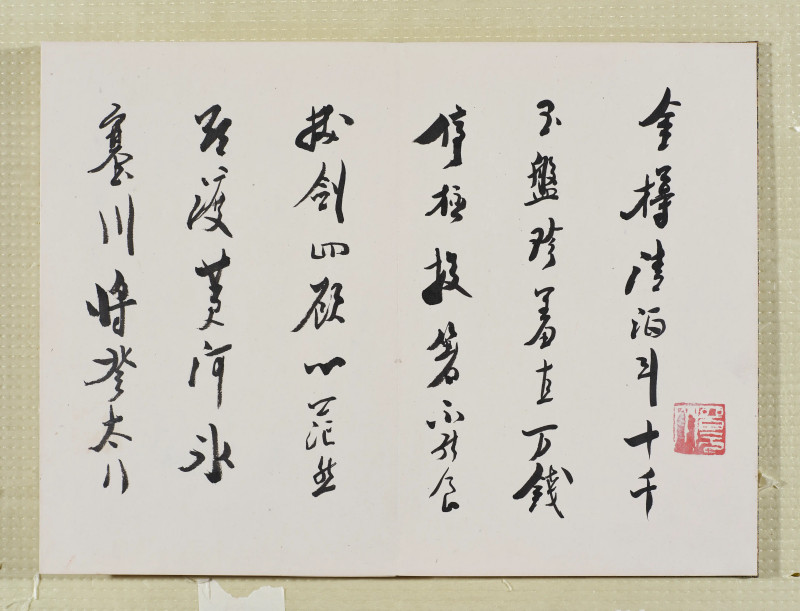 金樽清酒斗十千
玉盤珍羞直万錢
停杯投箸不能食
拔劍四顧心茫然
欲渡黃河冰
塞川將登太行